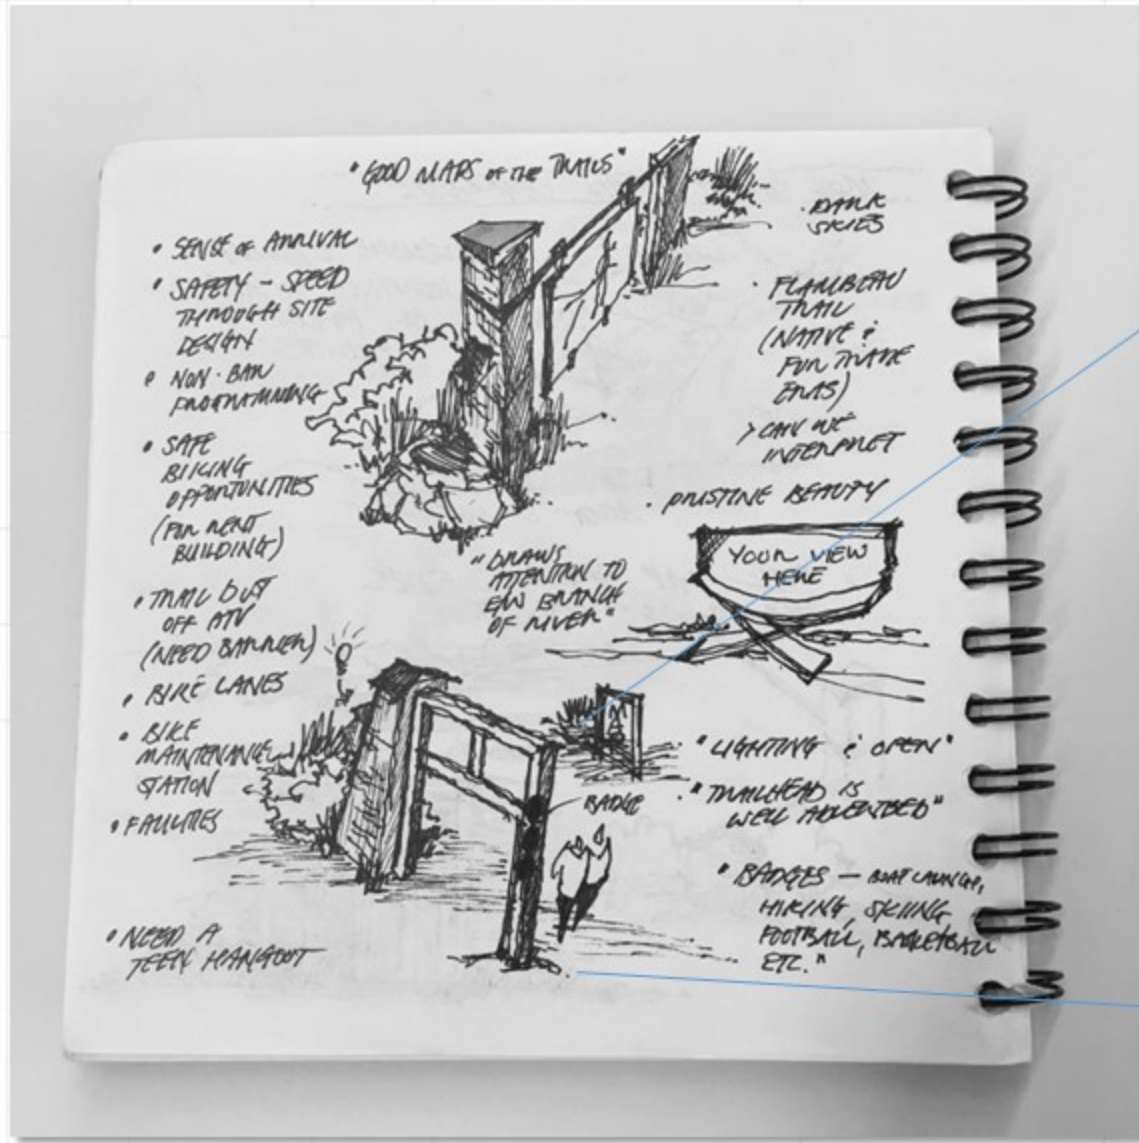 "GOOD MAPS OF THE TRAILS"
• SENSE OF ARRIVAL
• SAFETY - SPEED
THROUGH SITE
DESIGN
• NON-BAR
PROGRAMMING
• SAFE
BIKING
OPPORTUNITIES
(FOR RENT
BUILDING)
• TRAIL DUST
OFF ATV
(NEED BARRIER)
• BIKE LANES
• BIKE
MAINTENANCE
STATION
• FACILITIES
• NEED A
TEEN HANGOUT
"DRAWS
ATTENTION TO
E/W BRANCH
OF RIVER"
BADGE
• DARK
SKIES
• FLAMBEAU
TRAIL
(NATIVE &
FUR TRADE
ERAS)
> CAN WE
INTERPRET
• PRISTINE BEAUTY
YOUR VIEW
HERE
• "LIGHTING & OPEN"
• "TRAILHEAD IS
WELL ADVERTISED"
• "BADGES — BOAT LAUNCH,
HIKING, SKIING,
FOOTBALL, BASKETBALL
ETC."